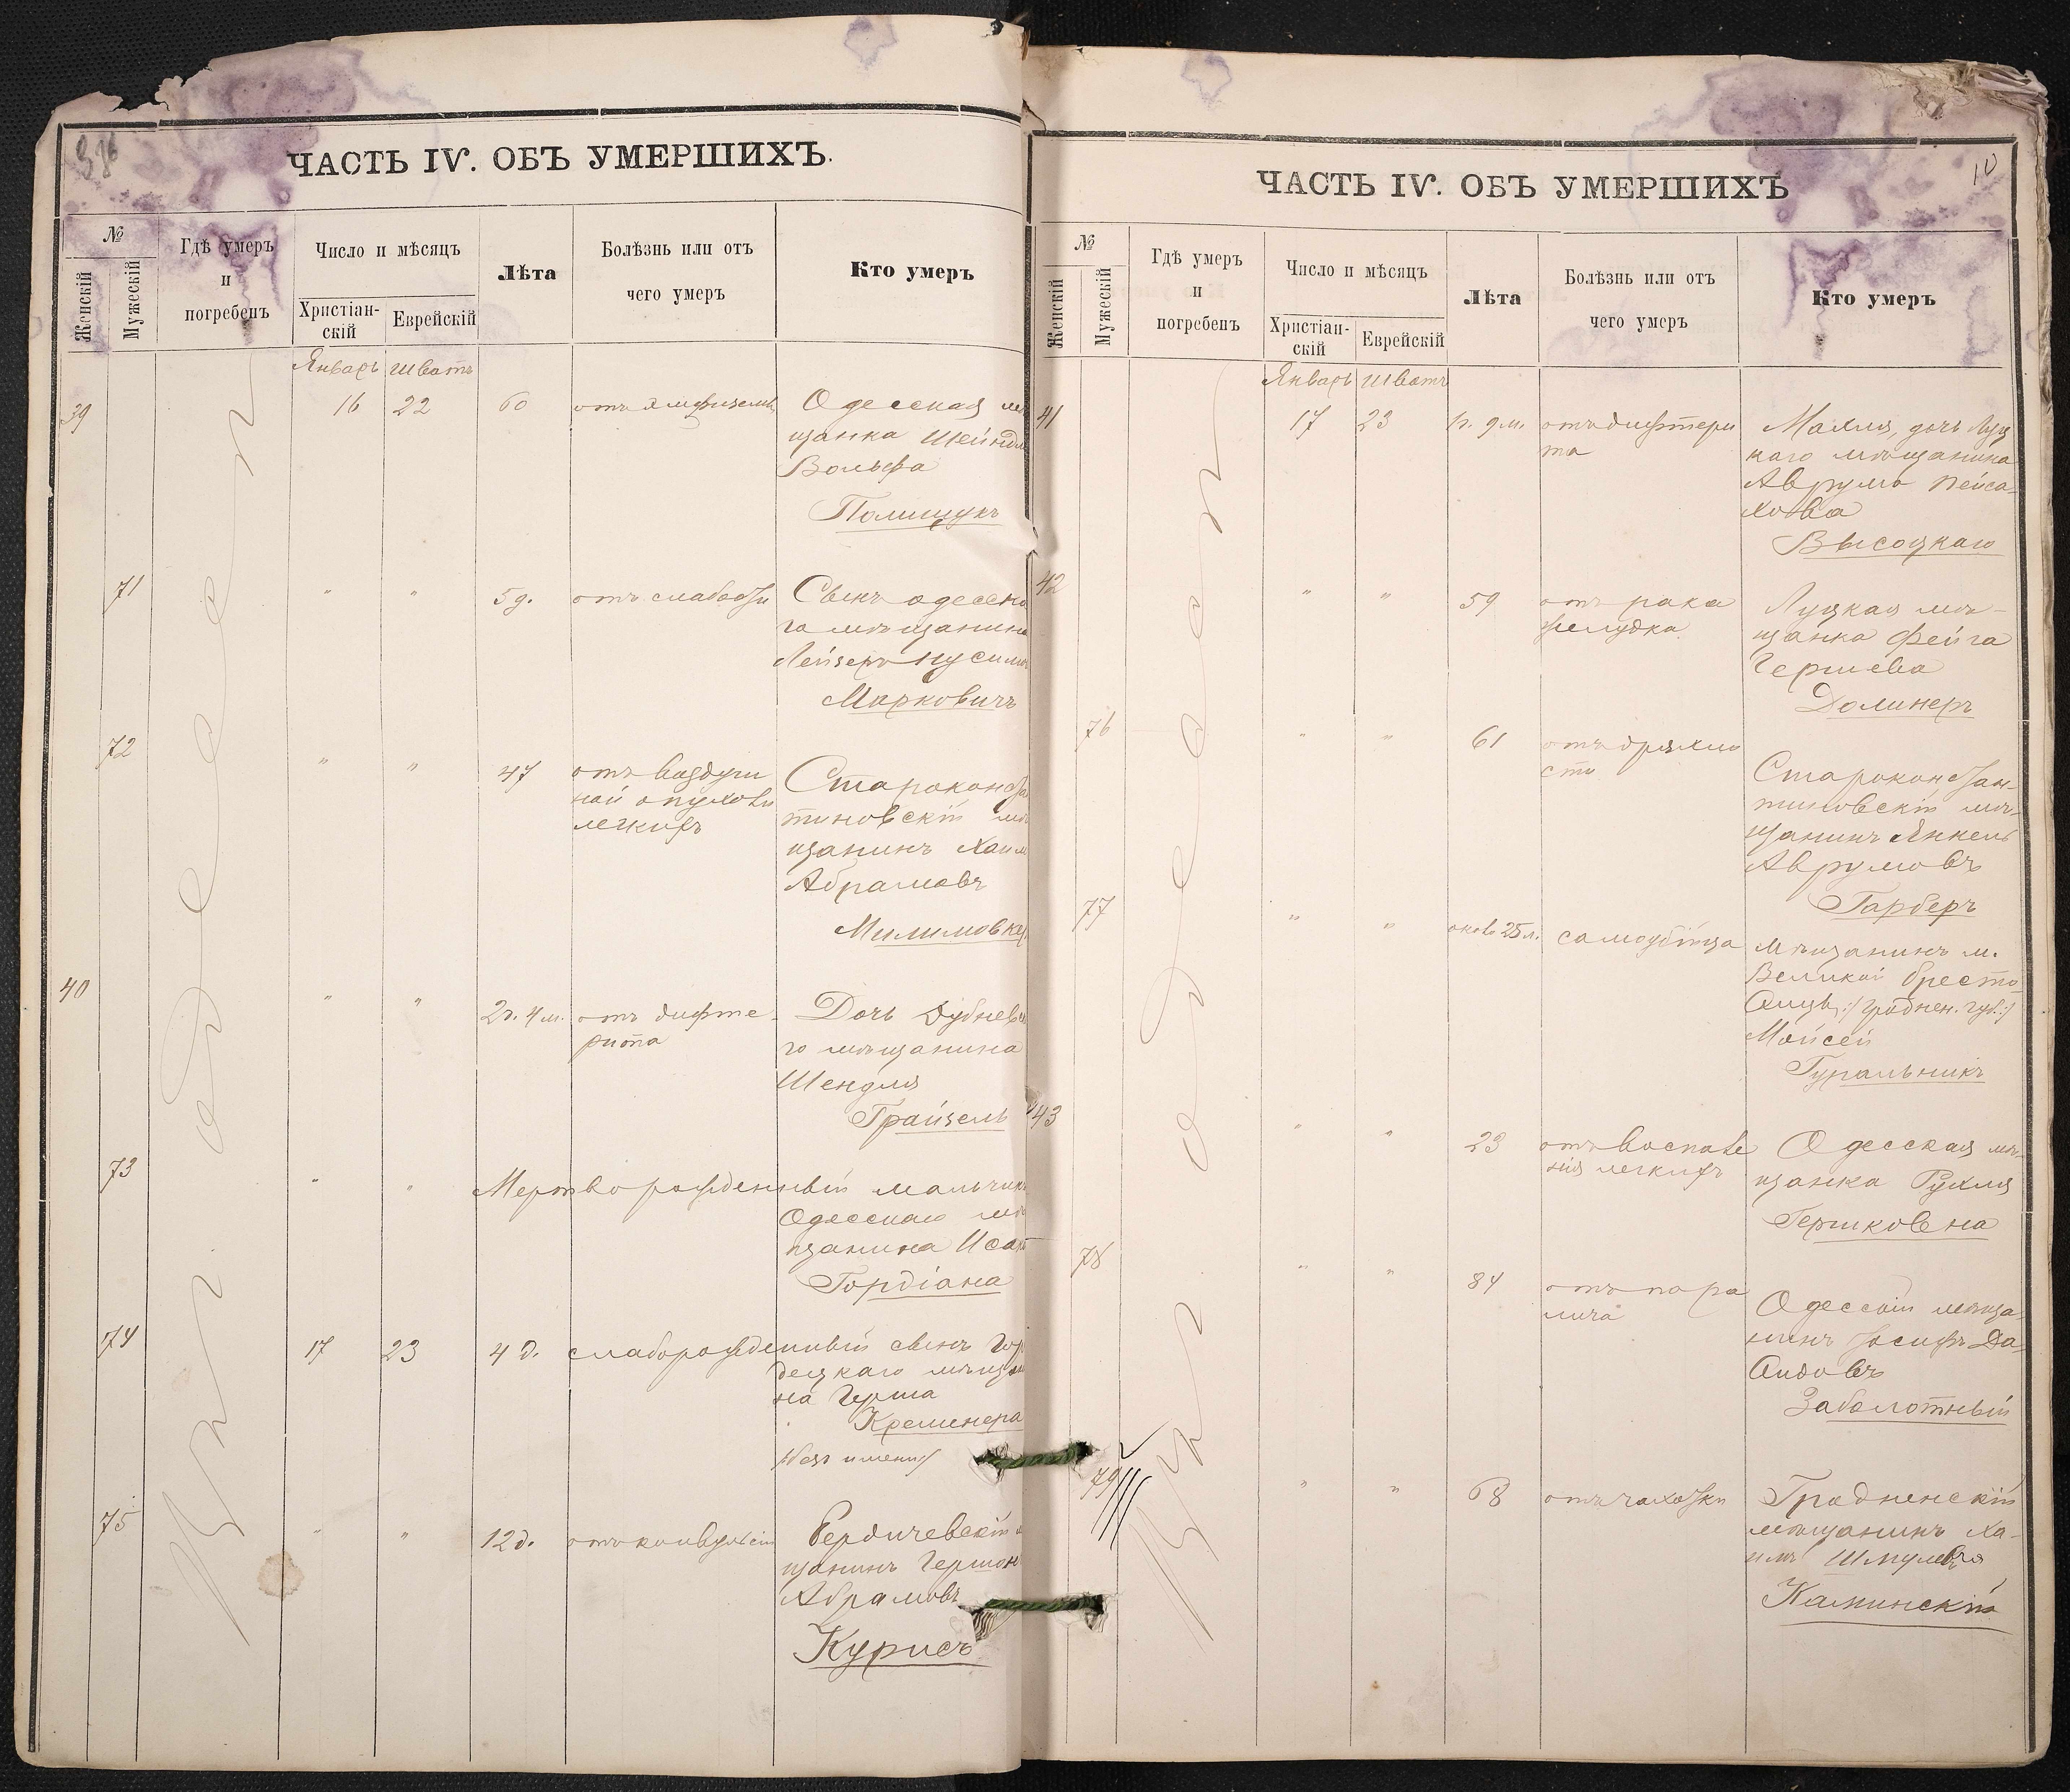 ЧАСТЬ IV. ОБЪ УМЕРШИХЪ.
№
Женскій
Мужескій
Гдѣ умеръ
и
погребенъ
Число и мѣсяцъ
Христіан-
скій
Еврейскій
Лѣта
Болѣзнь или отъ
чего умеръ
Кто умеръ
Январь Шватъ
39 16 22 60 Одесская мѣ
щанка Шейндля
Вольфа
Полищукъ
71 " " 5 д. отъ слабости Сынъ одесска
го мѣщанина
Лейзера Нусима
Марковичъ
72 " " 47 отъ воздуш
ной опухоли
легкихъ
Староконста
тиновскій мѣ
щанинъ Хаим
Абрамовъ
40 " " 2 г. 4 м. отъ дифте-
рита
Дочь Дубневска
го мѣщанина
Шендля
Грайзель
73 " " Мертворожденный мальчикъ
Одесскаго мѣ
щанина Исаа
Гордіана
74 17 23 4 д. слаборожденный сынъ Гор
децкаго мѣщан
на Герша
Кременера
/безъ имени/
75 " " 12 д. отъ конвульсіи Бердичевскій м
щанинъ Гершон
Абрамовъ
Курисъ
въ Одессѣ
10
ЧАСТЬ IV. ОБЪ УМЕРШИХЪ
№
Женскій
Мужескій
Гдѣ умеръ
и
погребенъ
Число и мѣсяцъ
Христіан-
скій
Еврейскій
Лѣта
Болѣзнь или отъ
чего умеръ
Кто умеръ
Январь Шватъ
41 17 23 1 г. 9 м. отъ дифтери
та
Махля, дочь Луц
каго мѣщанина
Аврума Пейса-
хова
Высоцкаго
42 " " 59 отъ рака
желудка
Луцкая мѣ-
щанка Фейга
Гершева
Долинеръ
76 " " 61 отъ дряхло
сти
Староконстан-
тиновскій мѣ-
щанинъ Янкель
Аврумовъ
Гарберъ
77 " " около 25 л. самоубійца мѣщанинъ м.
Великой Бресто
/: Гроднен. губ. :/
Мойсей
Гуральникъ
43 " " 23 отъ воспале
нія легкихъ
Одесская мѣ-
щанка Рухля
Гершковна
78 " " 84 отъ пара
лича
Одесскій мѣща-
нинъ Іосифъ Да-
видовъ
Заболотный
79 " " 68 отъ чахотки Гродненскій
мѣщанинъ Ха-
имъ Шмулевъ
Каминскій
въ Одессѣ